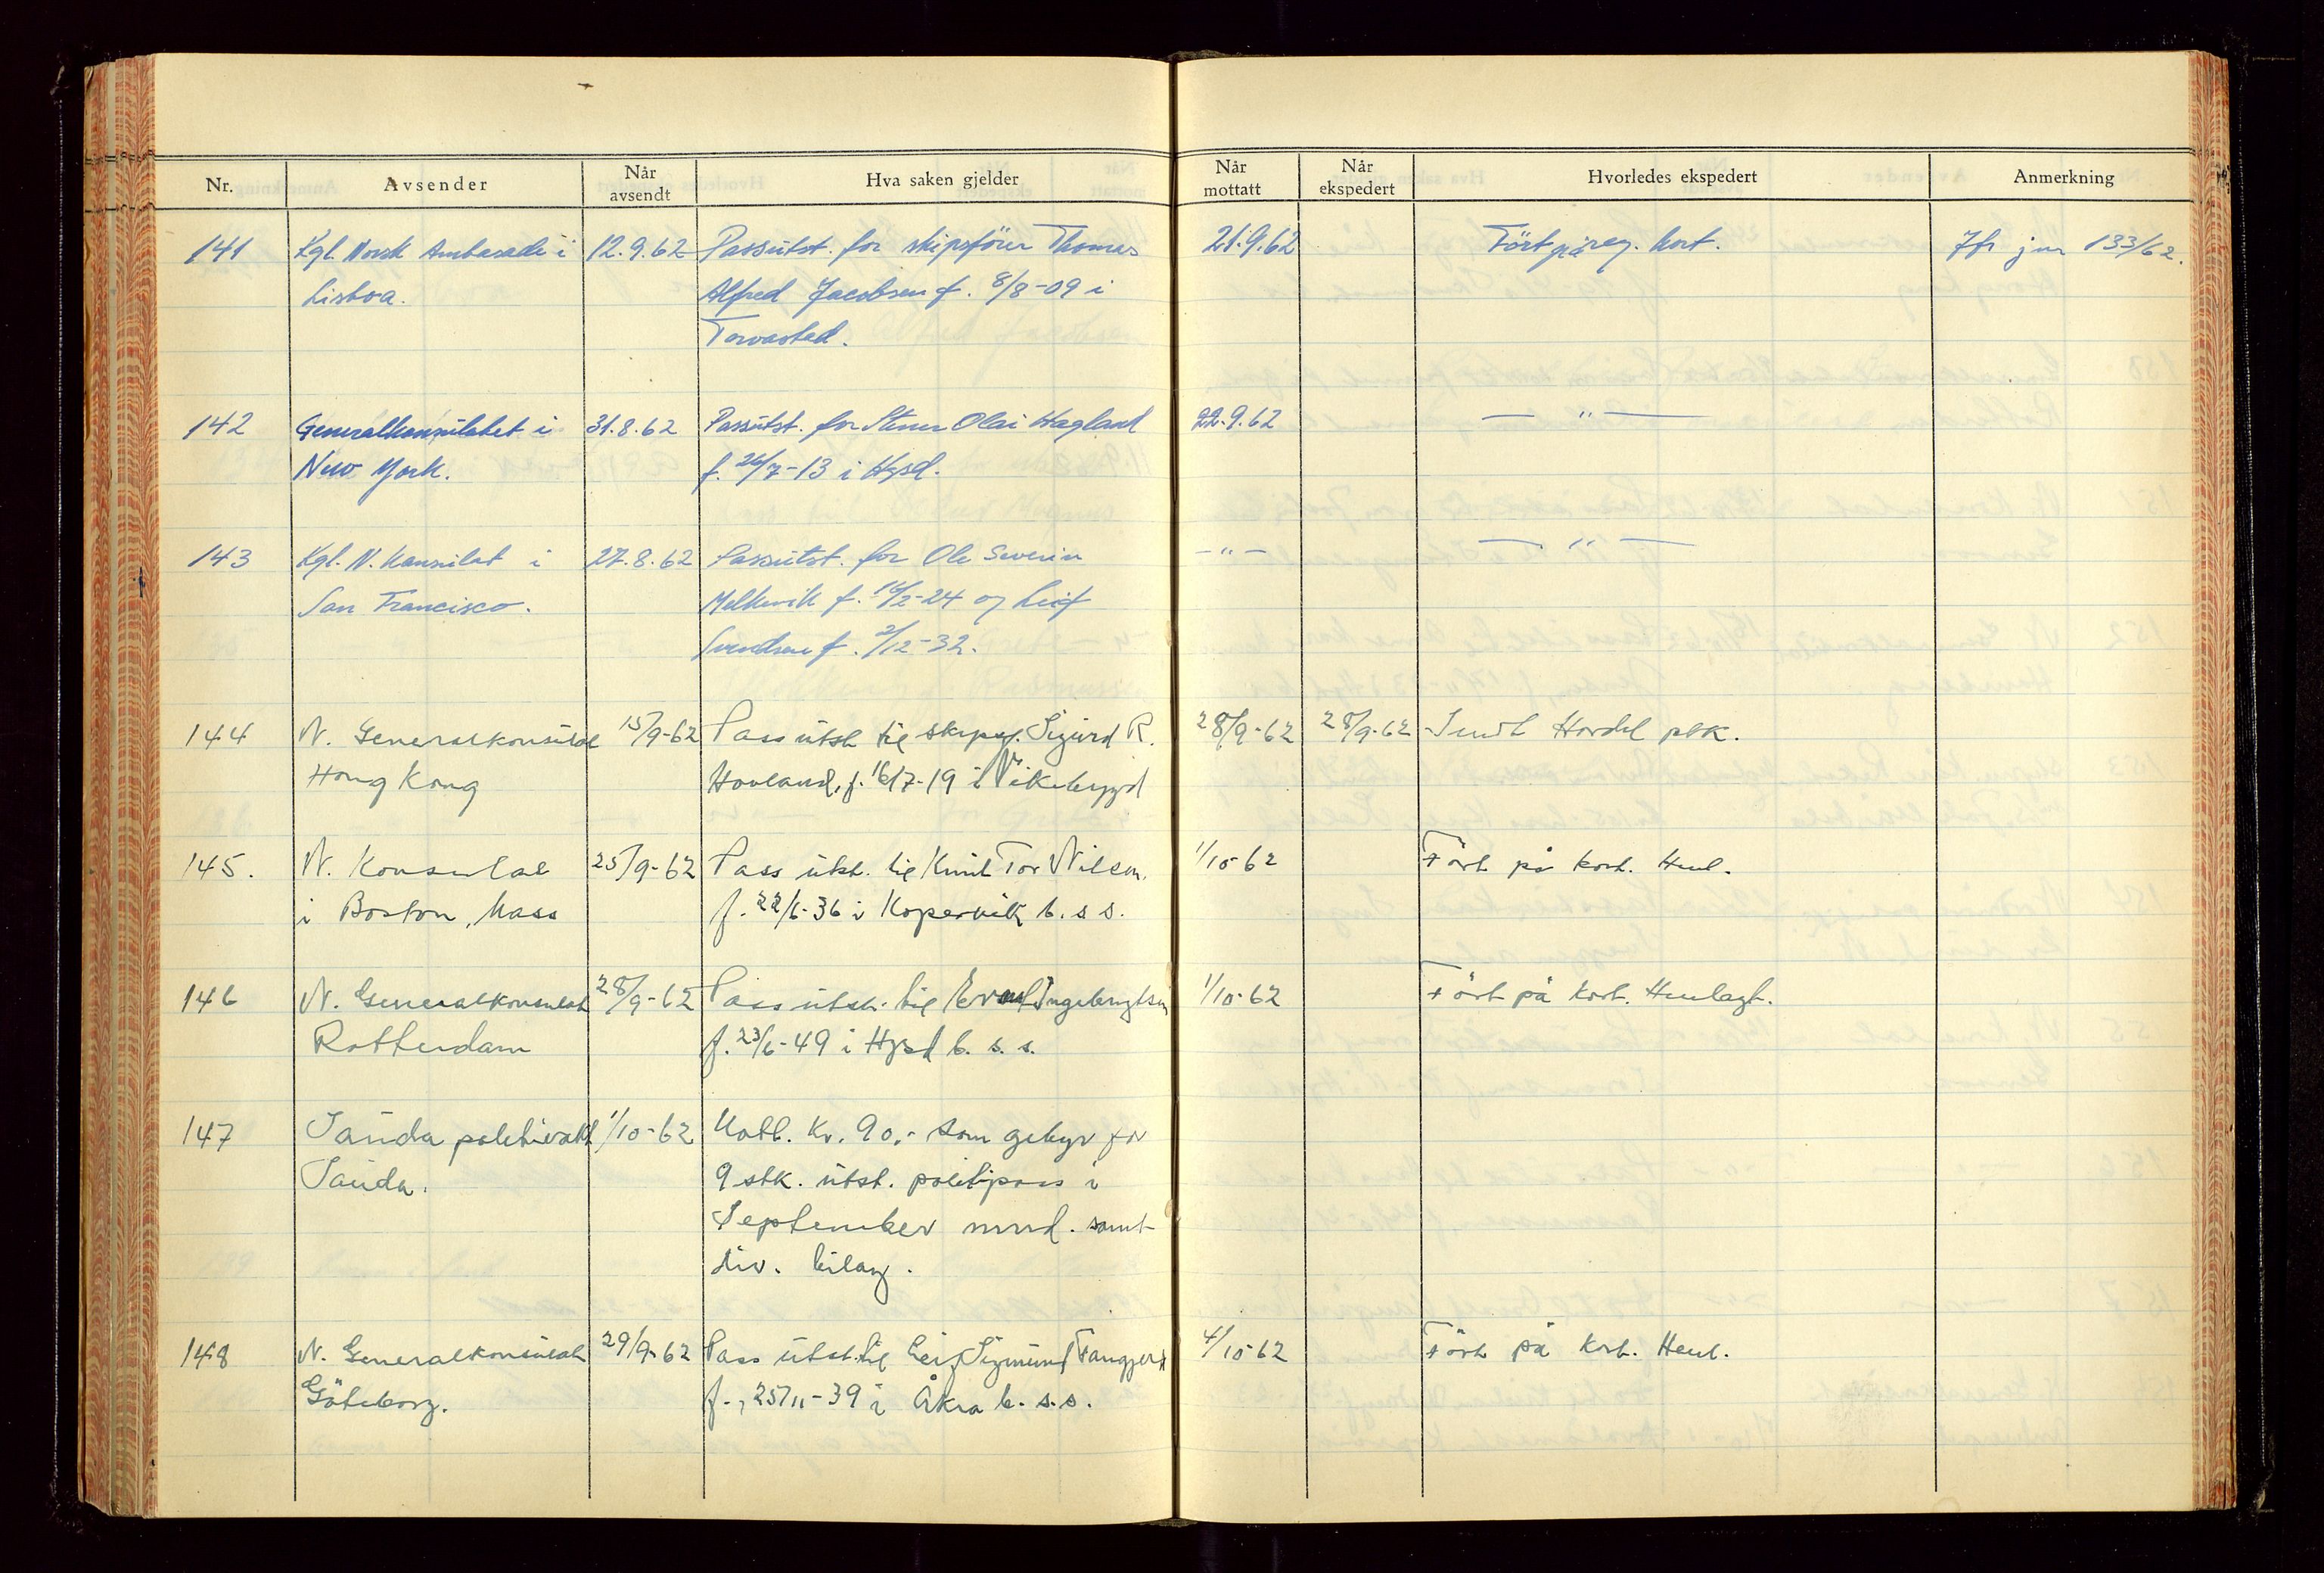 Nr. Avsender Når avsendt Hva saken gjelder Når mottatt Når ekspedert Hvorledes ekspedert Anmerkning
141 Kgl. Norsk Ambasade i 12.9.62 Passutst. for skipsförer Thomas 21.9.62 Fört på reg. kort. Jfr jnr 133/62.
Lisboa. Alfred Jacobsen f. 8/8-09 i
Torvastad.
142 Generalkonsulatet i 31.8.62 Passutst. for Olai Hagland 22.9.62 — " —
New York. f. 26/7-13 i Hgsd.
143 Kgl. N. Konsulat i 27.8.62 Passutst. for Ole Severin — " — — " —
San Francisco. Melkevik f. /2-24 og Leif
Svendsen f. 2/12-32.
144 N. Generalkonsulat 15/9-62 Pass utst til Sigurd R. 28/9-62 28/9-62 Sendt Hordal plk.
Hong Kong Hovland, f. 16/7-19 i Vikebygd
145. N. Konsulat 25/9-62 Pass utst. til Knut Tor Nilsen, 1/10-62 Fört på kort. Henl.
i Boston, Mass f. 22/6-36 i Kopervik b. s s.
146 N. Generalkonsulat 28/9-62 Pass utst. til Ingebrigtsen 1/10-62 Fört på kort. Henlagt.
Rotterdam f. 23/6-49 i Hgsd b. s. s.
147 Sauda politivakt 1/10-62 Kr. 90,- som gebyr for
Sauda. 9 stk. utst. politipass i
September mnd. samt
div. bilag.
148 N. Generalkonsulat 29/9-62 Pass utst. til Leif Sigmund 4/10-62 Fört på kort. Henl.
Göteborg. f., 25/11-39 i Åkra b. s.s.